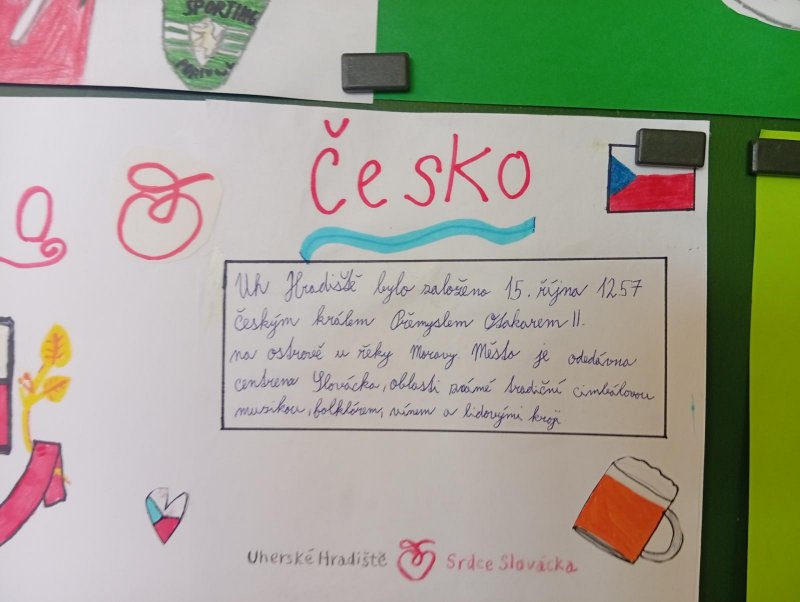 SPORTING
Česko
Uh Hradiště bylo založeno 15. října 1257
českým králem Přemyslem Otakarem II.
na ostrově u řeky Moravy Město je odedávna
centrena Slovácka, oblasti známé tradiční cimbálovou
muzikou, folklórem, vínem a lidovými kroji
Uherské Hradiště Srdce Slovácka